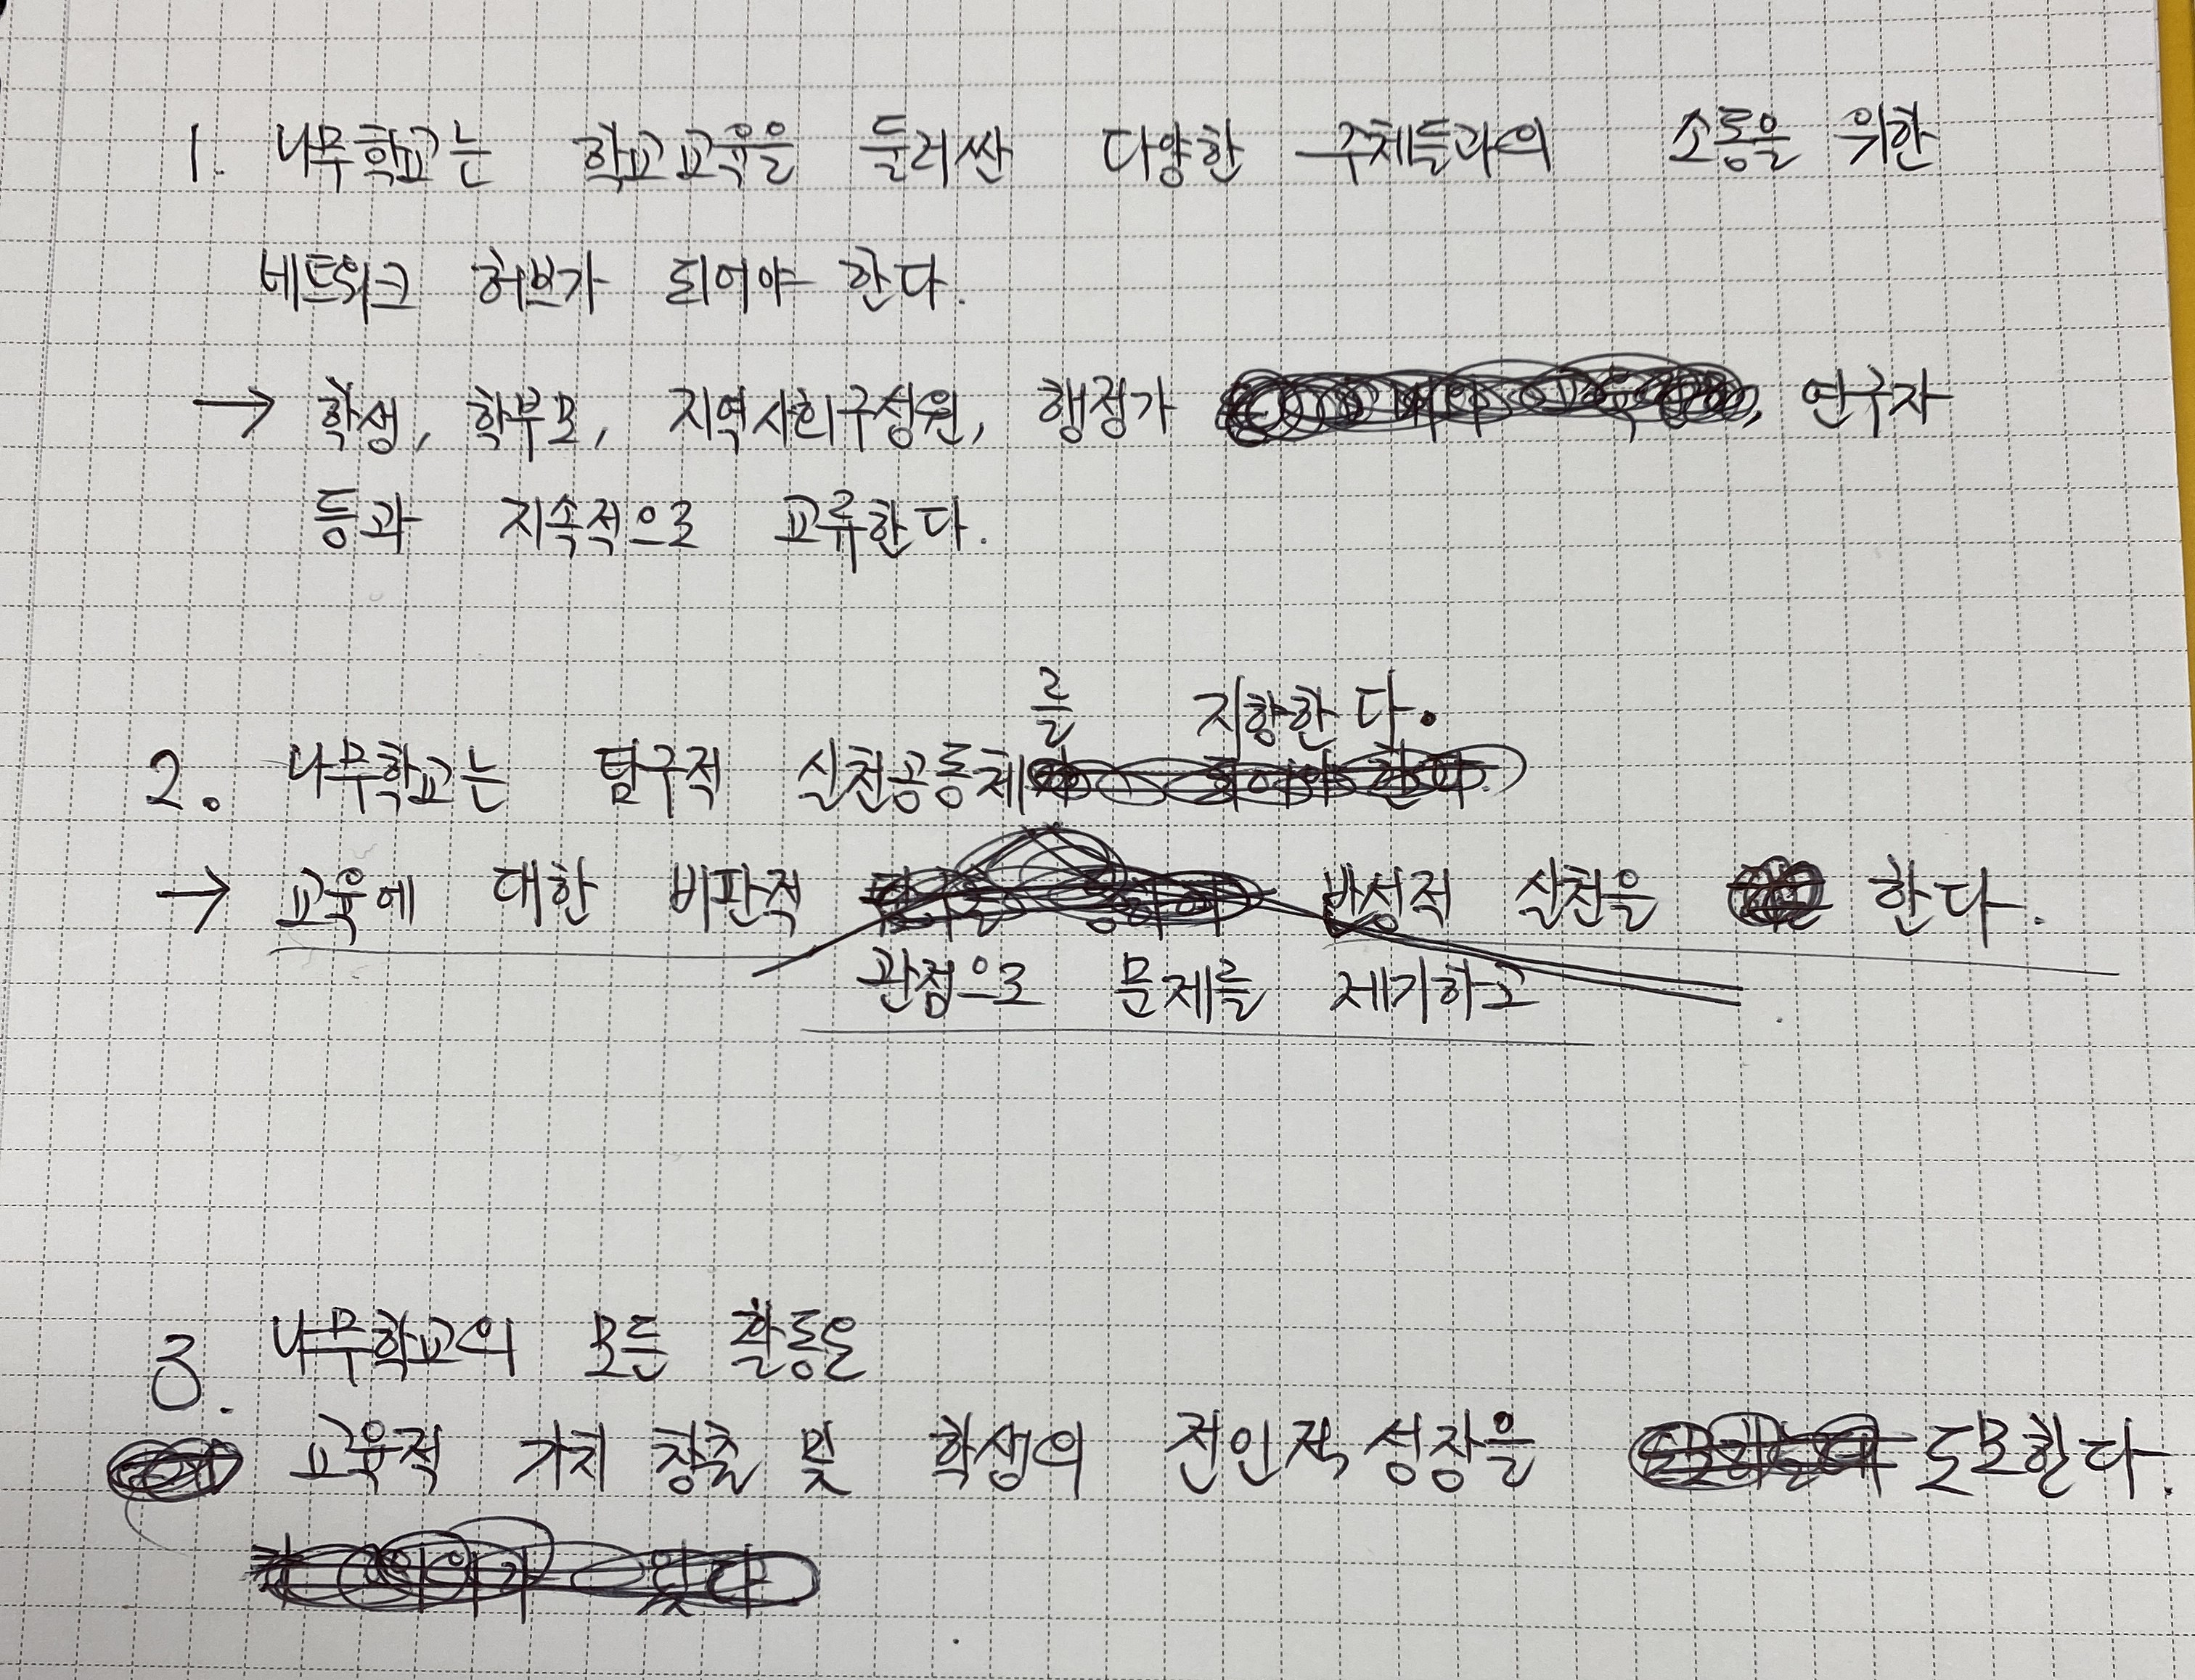 1. 나무학교는 학교교육을 둘러싼 다양한 주체들과의 소통을 위한
네트워크 허브가 되어야 한다.
→ 학생, 학부모, 지역사회구성원, 행정가 , 연구자
등과 지속적으로 교류한다.
를 지향한다.
2. 나무학교는 탐구적 실천공동체
→ 교육에 대한 비판적 반성적 실천을 한다.
관점으로 문제를 제기하고
3. 나무학교의 모든 활동은
교육적 가치 창출 및 학생의 전인적 성장을 도모한다.